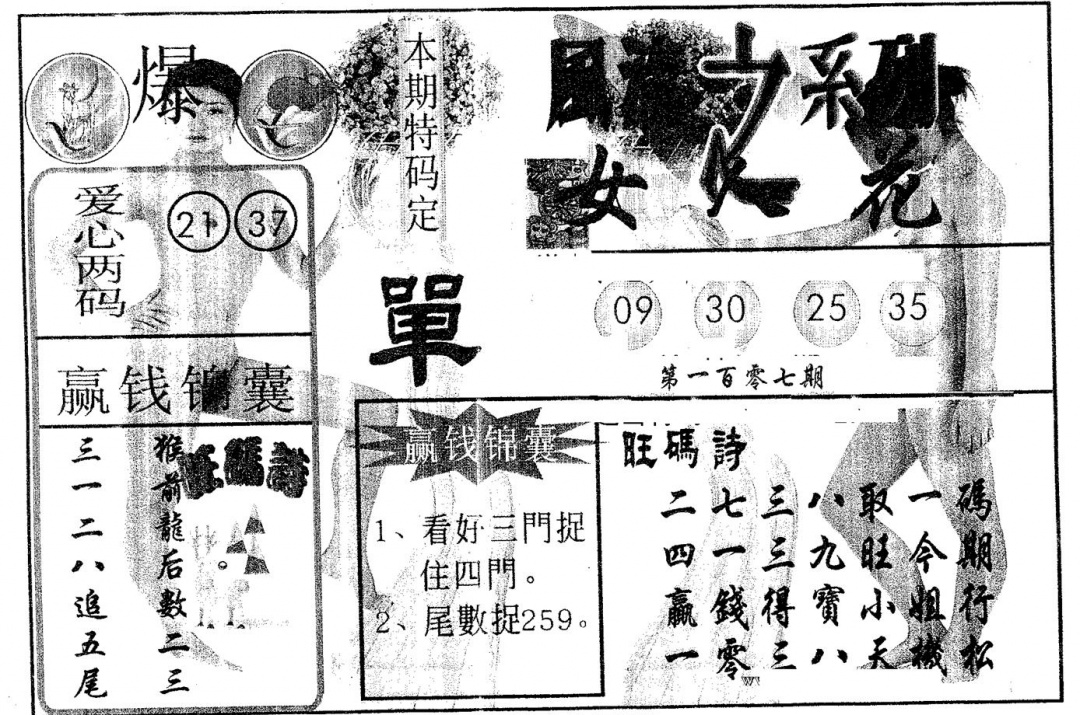 爆
本期特码定
單
之系列
女人花
爱心两码
21 37
09 30 25 35
第一百零七期
赢钱锦囊
猴前龍后數二三
三一二八追五尾
旺碼詩
赢钱锦囊
1、看好三門捉
住四門。
2、尾數捉259。
旺碼詩
二七三八取一碼
四一三九旺今期
贏錢得寶小姐行
一零三八天機松